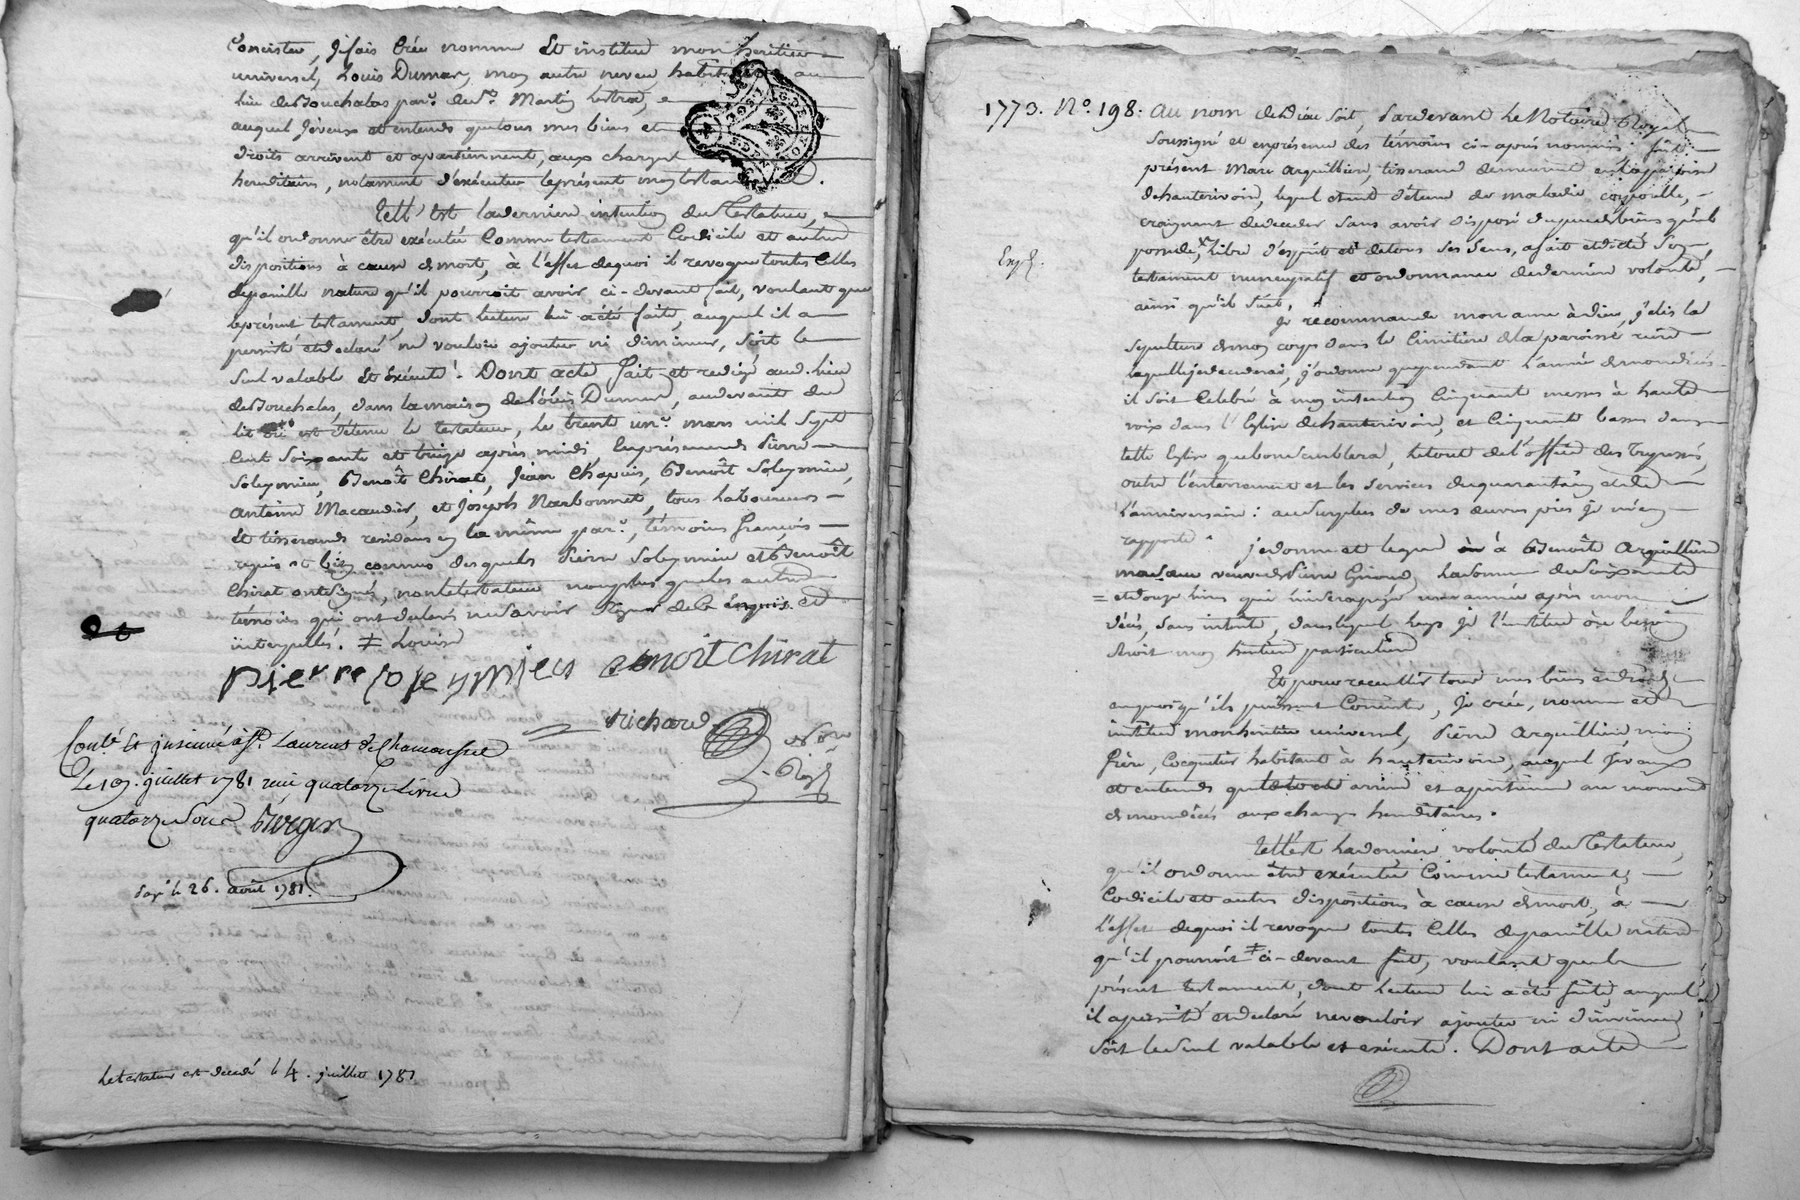 Concister, Je fais crée nomme Et institue mon heritier
universel, Louis Dumas, mon autre neveu habitant au
lieu des Souchalas parr. de St. Martin Lestra,
auquel Je veux et entends que tous mes biens et
droits arrivent et apartiennent, aux charges
hereditaires, notament d'exécuter le présent mon testament.
Cett' Est la derniere intention du Testateur,
qu'il ordonne être exécutée Comme testament Codicile et autres
dispositions à cause de mort, à l'effet de quoi il revoque toutes Celles
de pareille nature qu'il pourroit avoir ci-devant fait, voulant que
le présent testament, dont lecture lui a été faite, auquel il a
persisté et declaré ne vouloir ajouter ni diminuer, soit le
seul valable Et éxécuté. Dont acte fait et redigé aud. lieu
des Souchalas, dans la maison de Louis Dumas, au devant du
lit où est détenu le testateur, Le trente un mars mil sept
Cent Soixante et treize après midi, En présence de Pierre
Soleymieu, Benoît Chirat, Jean Chapuis, Benoît Soleymieu,
Antoine Macaudier, et Joseph Narbonnet, tous Laboureurs
Et tisserands residans en la même parr., témoins
requis et bien connus desquels Pierre Soleymieu et Benoît
Chirat ont signé, non le testateur non plus que les autres
témoins qui ont declaré ne savoir signer de ce enquis et
interpellés. ≠ Louis
pierre soleymieu benoit Chirat
Richard
Not. re
Royl
Conlé Et insinué à St. Laurens de Chamousset
Le 19. juillet 1781 reçu quatorze Livres
quatorze sous
le 26. août 1781.
Le testateur est decedé le 4. juillet 1781
1773. No. 198. Au nom de Dieu soit, Pardevant Le Notaire Royal
Soussigné et en présence des témoins ci-après nommés fut
présent Marc Arquillien, tisserand demeurant en la paroisse
d'hauterivoire, lequel étant détenu de maladie corporelle,
craignant de deceder sans avoir disposé du peu de biens qu'il
possede, libre d'esprit et de tous ses sens, a fait et dicté son
Exp.
testament nuncupatif et ordonnance de derniere volonté,
ainsi qu'il suit.
Je recommande mon ame à dieu, j'élis la
sepulture de mon corps dans le cimitiere de la paroisse riere
laquelle je decederai, j'ordonne que pendant l'année de mon décés
il soit Celebré à mon intention Cinquante messes à haute
voix dans l'Eglise d'hauterivoire, et Cinquante basses dans
telle Eglise que bon semblera, le tout de l'office des trepassés,
outre l'enterrement et les services de quarantaine et de
l'anniversaire: au surplus de mes œuvres pies Je m'en
rapporte. je donne et legue à Benoîte Arquillien
ma sœur veuve de Pierre Giroud, la somme de Soixante
et douze livres qui lui sera payée une année après mon
décés, sans intérêt, dans lequel legs je l'institue où besoin
seroit mon héritiere particuliere
Et pour recueillir tous mes biens et droits
en quoi qu'ils puissent Concister, Je crée, nomme et
institue mon heritier universel, Pierre Arquillien mon
frere, Cocquetier habitant à hauterivoire, auquel Je veux
et entends que le tout arrive et apartienne au moment
de mon décés aux charges hereditaires.
Cett'Est la derniere volonté du Testateur,
qu'il ordonne être exécutée Comme testament,
Codicile et autres dispositions à cause de mort, à
l'effet de quoi il revoque toutes Celles de pareille nature
qu'il pourroit ≠ ci-devant fait, voulant que le
présent testament, dont lecture lui a été faite, auquel
il a persisté et declaré ne vouloir ajouter ni diminuer,
soit le seul valable et exécuté. Dont acte